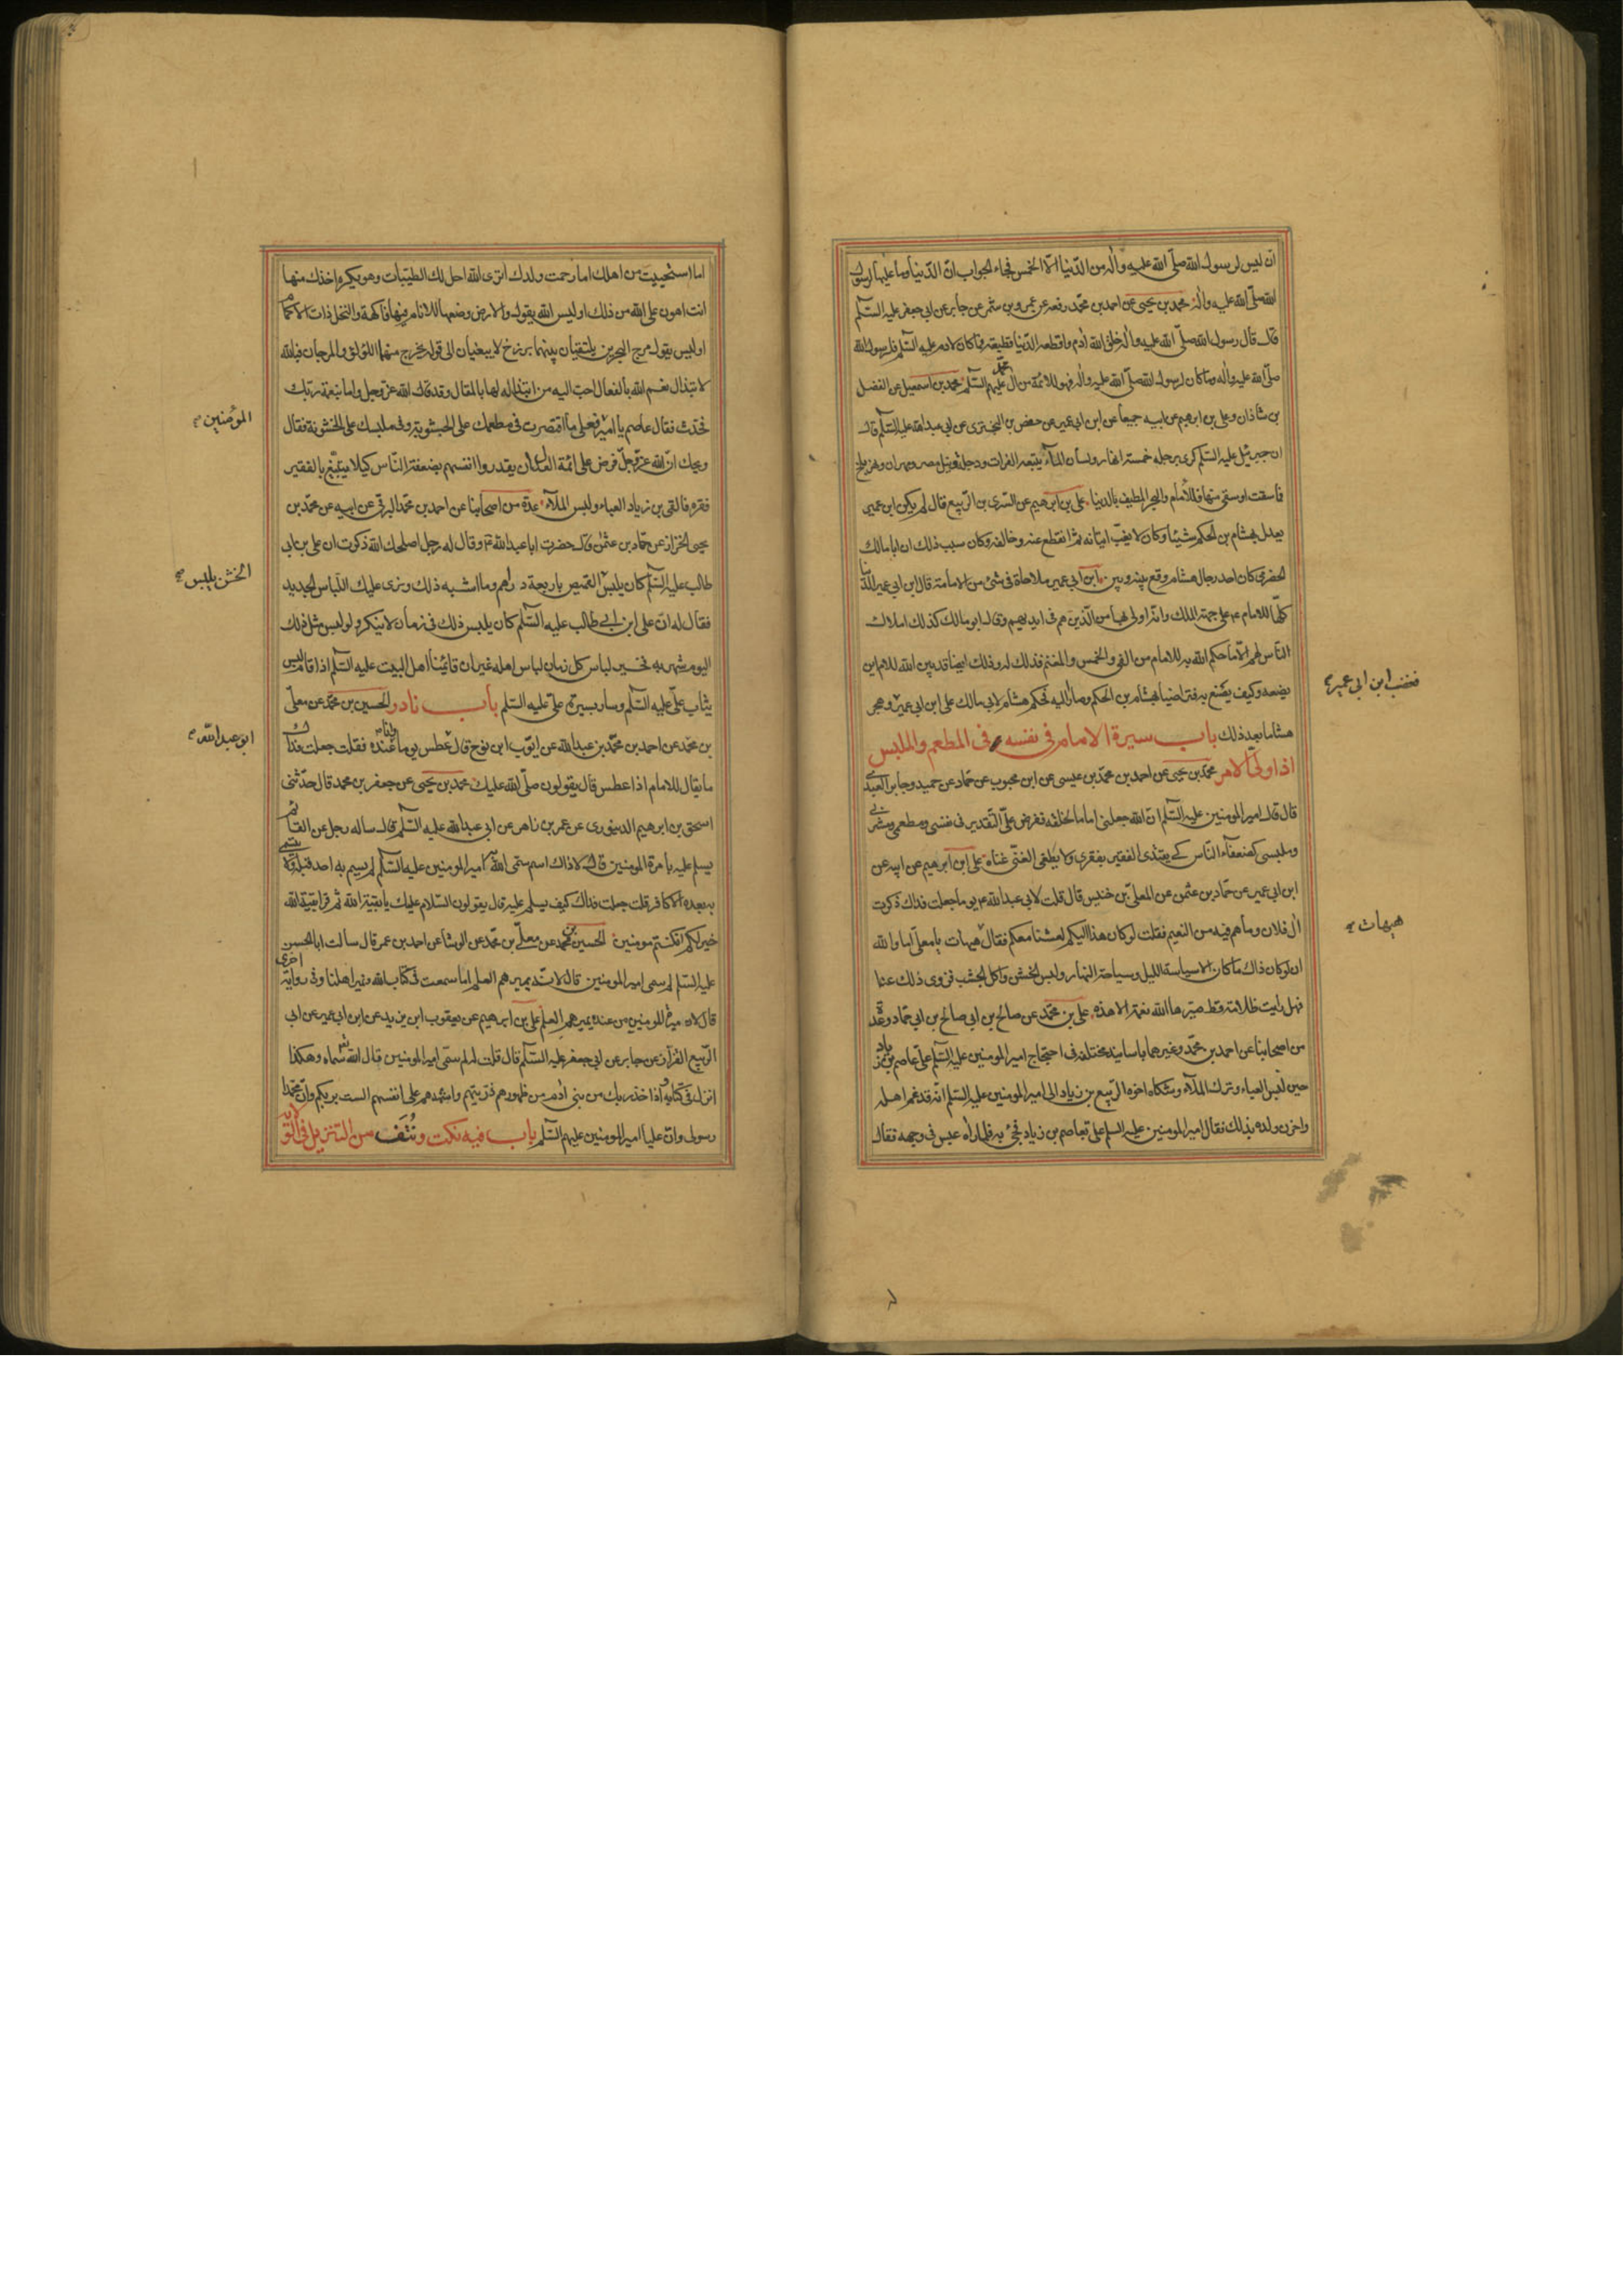 ان ليس لرسول الله صلّى الله عليه وآله من الدّنيا الّا الخمس فجاء الجواب انّ الدّنيا وما عليها لرسول
الله صلّى الله عليه وآله محمد بن يحيى عن احمد بن محمّد رفعه عن عمرو بن شمر عن جابر عن ابى جعفر عليه السّلم
قال قال رسول الله صلّى الله عليه وآله خلق الله آدم واقطعه الدّنيا قطيعة فما كان لادم عليه السّلم فلرسول الله
صلّى الله عليه وآله وما كان لرسول الله صلّى الله عليه وآله فهو للائمّة من آل محمد عليهم السّلم محمد بن اسمعيل عن الفضل
بن شاذان وعلى بن ابرهيم عن ابيه جميعا عن ابن ابى عمير عن حفص بن البخترى عن ابى عبد الله عليه السّلم قال
ان جبرئيل عليه السّلم كرى برجله خمسة انهار ولسان الماء يتبعه الفرات ودجلة ونيل مصر ومهران ونهر بلخ
فما سقت او سقى منها فللامام والبحر المطيف بالدنيا على بن ابرهيم عن السّرى بن الرّبيع قال لم يكن ابن ابى عمير
يعدل بهشام بن الحكم شيئا وكان لا يغبّ اتيانه ثم انقطع عنه وخالفه وكان سبب ذلك ان ابا مالك
الحضرمى كان احد رجال هشام وقع بينه وبين ابن ابى عمير ملاحاة فى شئ من الامامة قال ابن ابى عمير الدّنيا
كلّها للامام ع على جهة الملك وانّه اولى بها من الّذين هم فى ايديهم وقال ابو مالك كذلك املاك
النّاس لهم الّا ما حكم الله به للامام من الفئ والخمس والمغنم فذلك له وذلك ايضا قد بين الله للامام اين
يضعه وكيف يصنع به فتراضيا بهشام بن الحكم وصارا اليه فحكم هشام لابى مالك على ابن ابى عمير وهجر
فغضب ابن ابى عمير
هشاما بعد ذلك باب سيرة الامام فى نفسه وفى المطعم والملبس
اذا ولّى الامر محمّد بن يحيى عن احمد بن محمّد بن عيسى عن ابن محبوب عن حماد عن حميد وجابر العبدى
قال قال امير المومنين عليه السّلم انّ الله جعلنى اماما لخلقه ففرض علىّ التّقدير فى نفسى ومطعمى ومشربى
وملبسى كضعفآء النّاس كى يقتدى الفقير بفقرى ولا يطغى الغنىّ غناه على بن ابرهيم عن ابيه عن
ابن ابى عمير عن حمّاد بن عثمن عن المعلّى بن خنيس قال قلت لابى عبد الله ع يوما جعلت فداك ذكرت
آل فلان وما هم فيه من النعيم فقلت لو كان هذا اليكم لعشنا معكم فقال هيهات يا معلّى اما والله
هيهات
ان لو كان ذاك ما كان الا سياسة الليل وسياحة النهار ولبس الخشن واكل الجشب فزوى ذلك عنا
فهل رايت ظلامة قط صيّرها الله نعمة الا هذه على بن محمّد عن صالح بن ابى حمّاد وعدّة
من اصحابنا عن احمد بن محمّد وغيرهما باسانيد مختلفة فى احتجاج امير المومنين عليه السّلم على عاصم بن زياد
حين لبس العباء وترك الملاء وشكاه اخوه الرّبيع بن زياد الى امير المومنين عليه السّلم انّه قد غم اهله
واحزن ولده بذلك فقال امير المومنين عليه السلم علىّ بعاصم بن زياد فجئ به فلمّا رآه عبس فى وجهه فقال
اما استحييت من اهلك اما رحمت ولدك اترى الله احل لك الطيّبات وهو يكره اخذك منها
انت اهون على الله من ذلك اوليس الله يقول والارض وضعها للانام فيها فاكهة والنّخل ذات الاكمام
اوليس يقول مرج البحرين يلتقيان بينهما برزخ لا يبغيان الى قوله يخرج منهما اللؤلؤ والمرجان فبالله
لابتذال نعم الله بالفعال احبّ اليه من ابتذاله لها بالمقال وقد قال الله عزّ وجل واما بنعمة ربّك
فحدّث فقال عاصم يا امير فعلى ما اقتصرت فى مطعمك على الجشوبة وفى ملبسك على الخشونة فقال
المؤمنين
ويحك انّ الله عزّ وجلّ فرض على ائمّة العدل ان يقدروا انفسهم بضعفة النّاس كيلا يتبيّغ بالفقير
فقره فالقى بن زياد العباء ولبس الملآء عدّة من اصحابنا عن احمد بن محمّد البرقى عن ابيه عن محمّد بن
يحيى الخزاز عن حمّاد بن عثمن قال حضرت ابا عبد الله ع وقال له رجل اصلحك الله ذكرت ان على بن ابى
طالب عليه السّلم كان يلبس القميص باربعة دراهم وما اشبه ذلك ونرى عليك اللّباس الجديد
الخشن يلبس
فقال له انّ على ابن ابى طالب عليه السّلم كان يلبس ذلك فى زمان لا ينكر ولو لبس مثل ذلك
اليوم شهر به فخير لباس كل زمان لباس اهله غير ان قائمنا اهل البيت عليه السّلم اذا قام لبس
ثياب علىّ عليه السّلم وسار بسيرة علىّ عليه السّلم باب نادر الحسين بن محمّد عن معلّى
بن محمّد عن احمد بن محمّد بن عبد الله عن ايّوب ابن نوح قال عطس يوما وانا عنده فقلت جعلت فداك
ابو عبد الله
ما يقال للامام اذا عطس قال يقولون صلّى الله عليك محمّد بن يحيى عن جعفر بن محمد قال حدّثنى
اسحق بن ابرهيم الدينورى عن عمر بن زاهر عن ابى عبد الله عليه السّلم قال ساله رجل عن القائم
يسلم عليه بامرة المومنين قال لا ذاك اسم سمّى الله امير المومنين عليه السّلم لم يسم به احد قبله ولا يتسمّى
به بعده الّا كافر قلت جعلت فداك كيف يسلم عليه قال يقولون السّلام عليك يا بقيّة الله ثم قرا بقيّة الله
خير لكم ان كنتم مومنين الحسين بن محمّد عن معلّى بن محمّد عن الوشّا عن احمد بن عمر قال سالت ابا الحسن
عليه السّلم لم سمى امير المومنين قال لانه يميرهم العلم اما سمعت فى كتاب الله ونمير اهلنا وفى رواية اخرى
قال لان ميرة المومنين من عنده يميرهم العلم على بن ابرهيم عن يعقوب ابن يزيد عن ابن ابى عمير عن ابى
الرّبيع القزّاز عن جابر عن ابى جعفر عليه السّلم قال قلت له لم سمّى امير المومنين قال الله سمّاه وهكذا
انزل فى كتابه واذ اخذ ربك من بنى آدم من ظهورهم ذرّيتهم واشهدهم على انفسهم الست بربكم وانّ محمّدا
رسولى وانّ عليّا امير المومنين عليهم السّلم باب فيه نكت ونُتَف من التنزيل فى الولاية